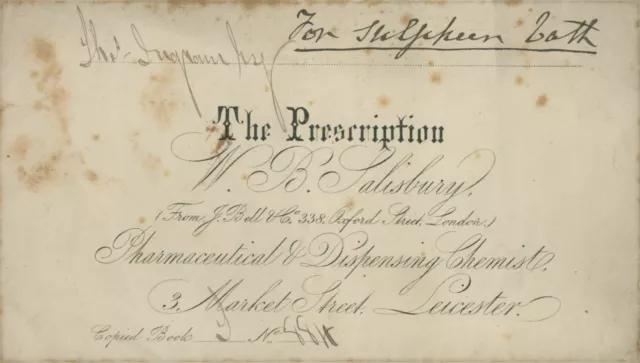 Thos. Ingram Esq
For Sulpheen bath
The Prescription
W. B. Salisbury,
(From J. Bell & Co. 338, Oxford Street, London,)
Pharmaceutical & Dispensing Chemist,
3, Market Street, Leicester.
Copied Book 5 No.